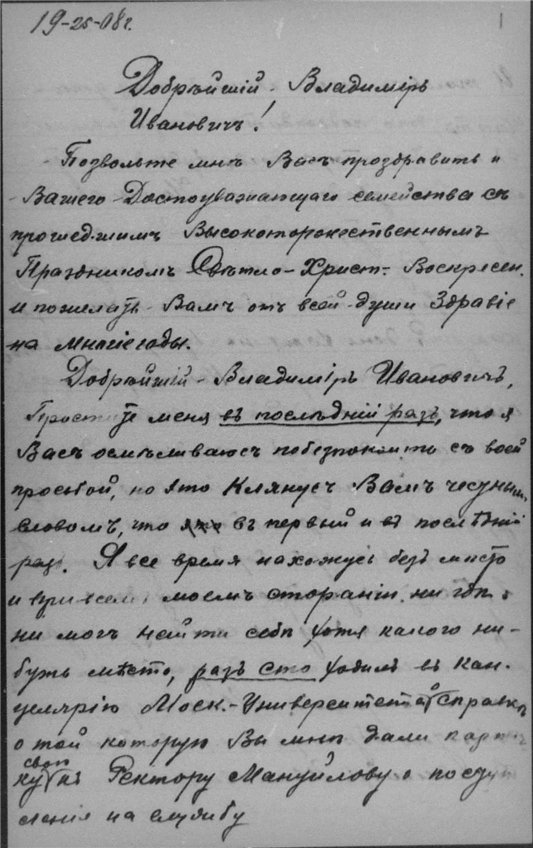 19-25-08 г.
1
Добрѣйшій - Владимиръ
Ивановичъ!
Позвольте мнѣ Васъ проздравить и
Вашего Достоуважающаго семейства съ
прошедшимъ Высокоторжественнымъ
Праздникомъ Свѣтло-Христ. Воскресен.
и пожелать Вамъ отъ всей души Здравіе
на многіе годы.
Добрѣйшій - Владиміръ Ивановичъ,
Простите меня въ послѣдній разъ, что я
Васъ осмѣливаюсь побезпокоить съ воей
просьбой, но я то Клянусь Вамъ чесным
словомъ, что въ первый и въ послѣдній
разъ. Я все время нахожусь безъ мѣсто
и при всемъ моемъ стараніи ни гдѣ
ни могъ найти себѣ хотя какого ни-
будь мѣсто, разъ сто ходилъ въ кан.
целярію Моск.-Университета о справкѣ
о той которую Вы мнѣ дали карточ
свою
ку къ Ректору Мануйлову о поступ
ленія на службу